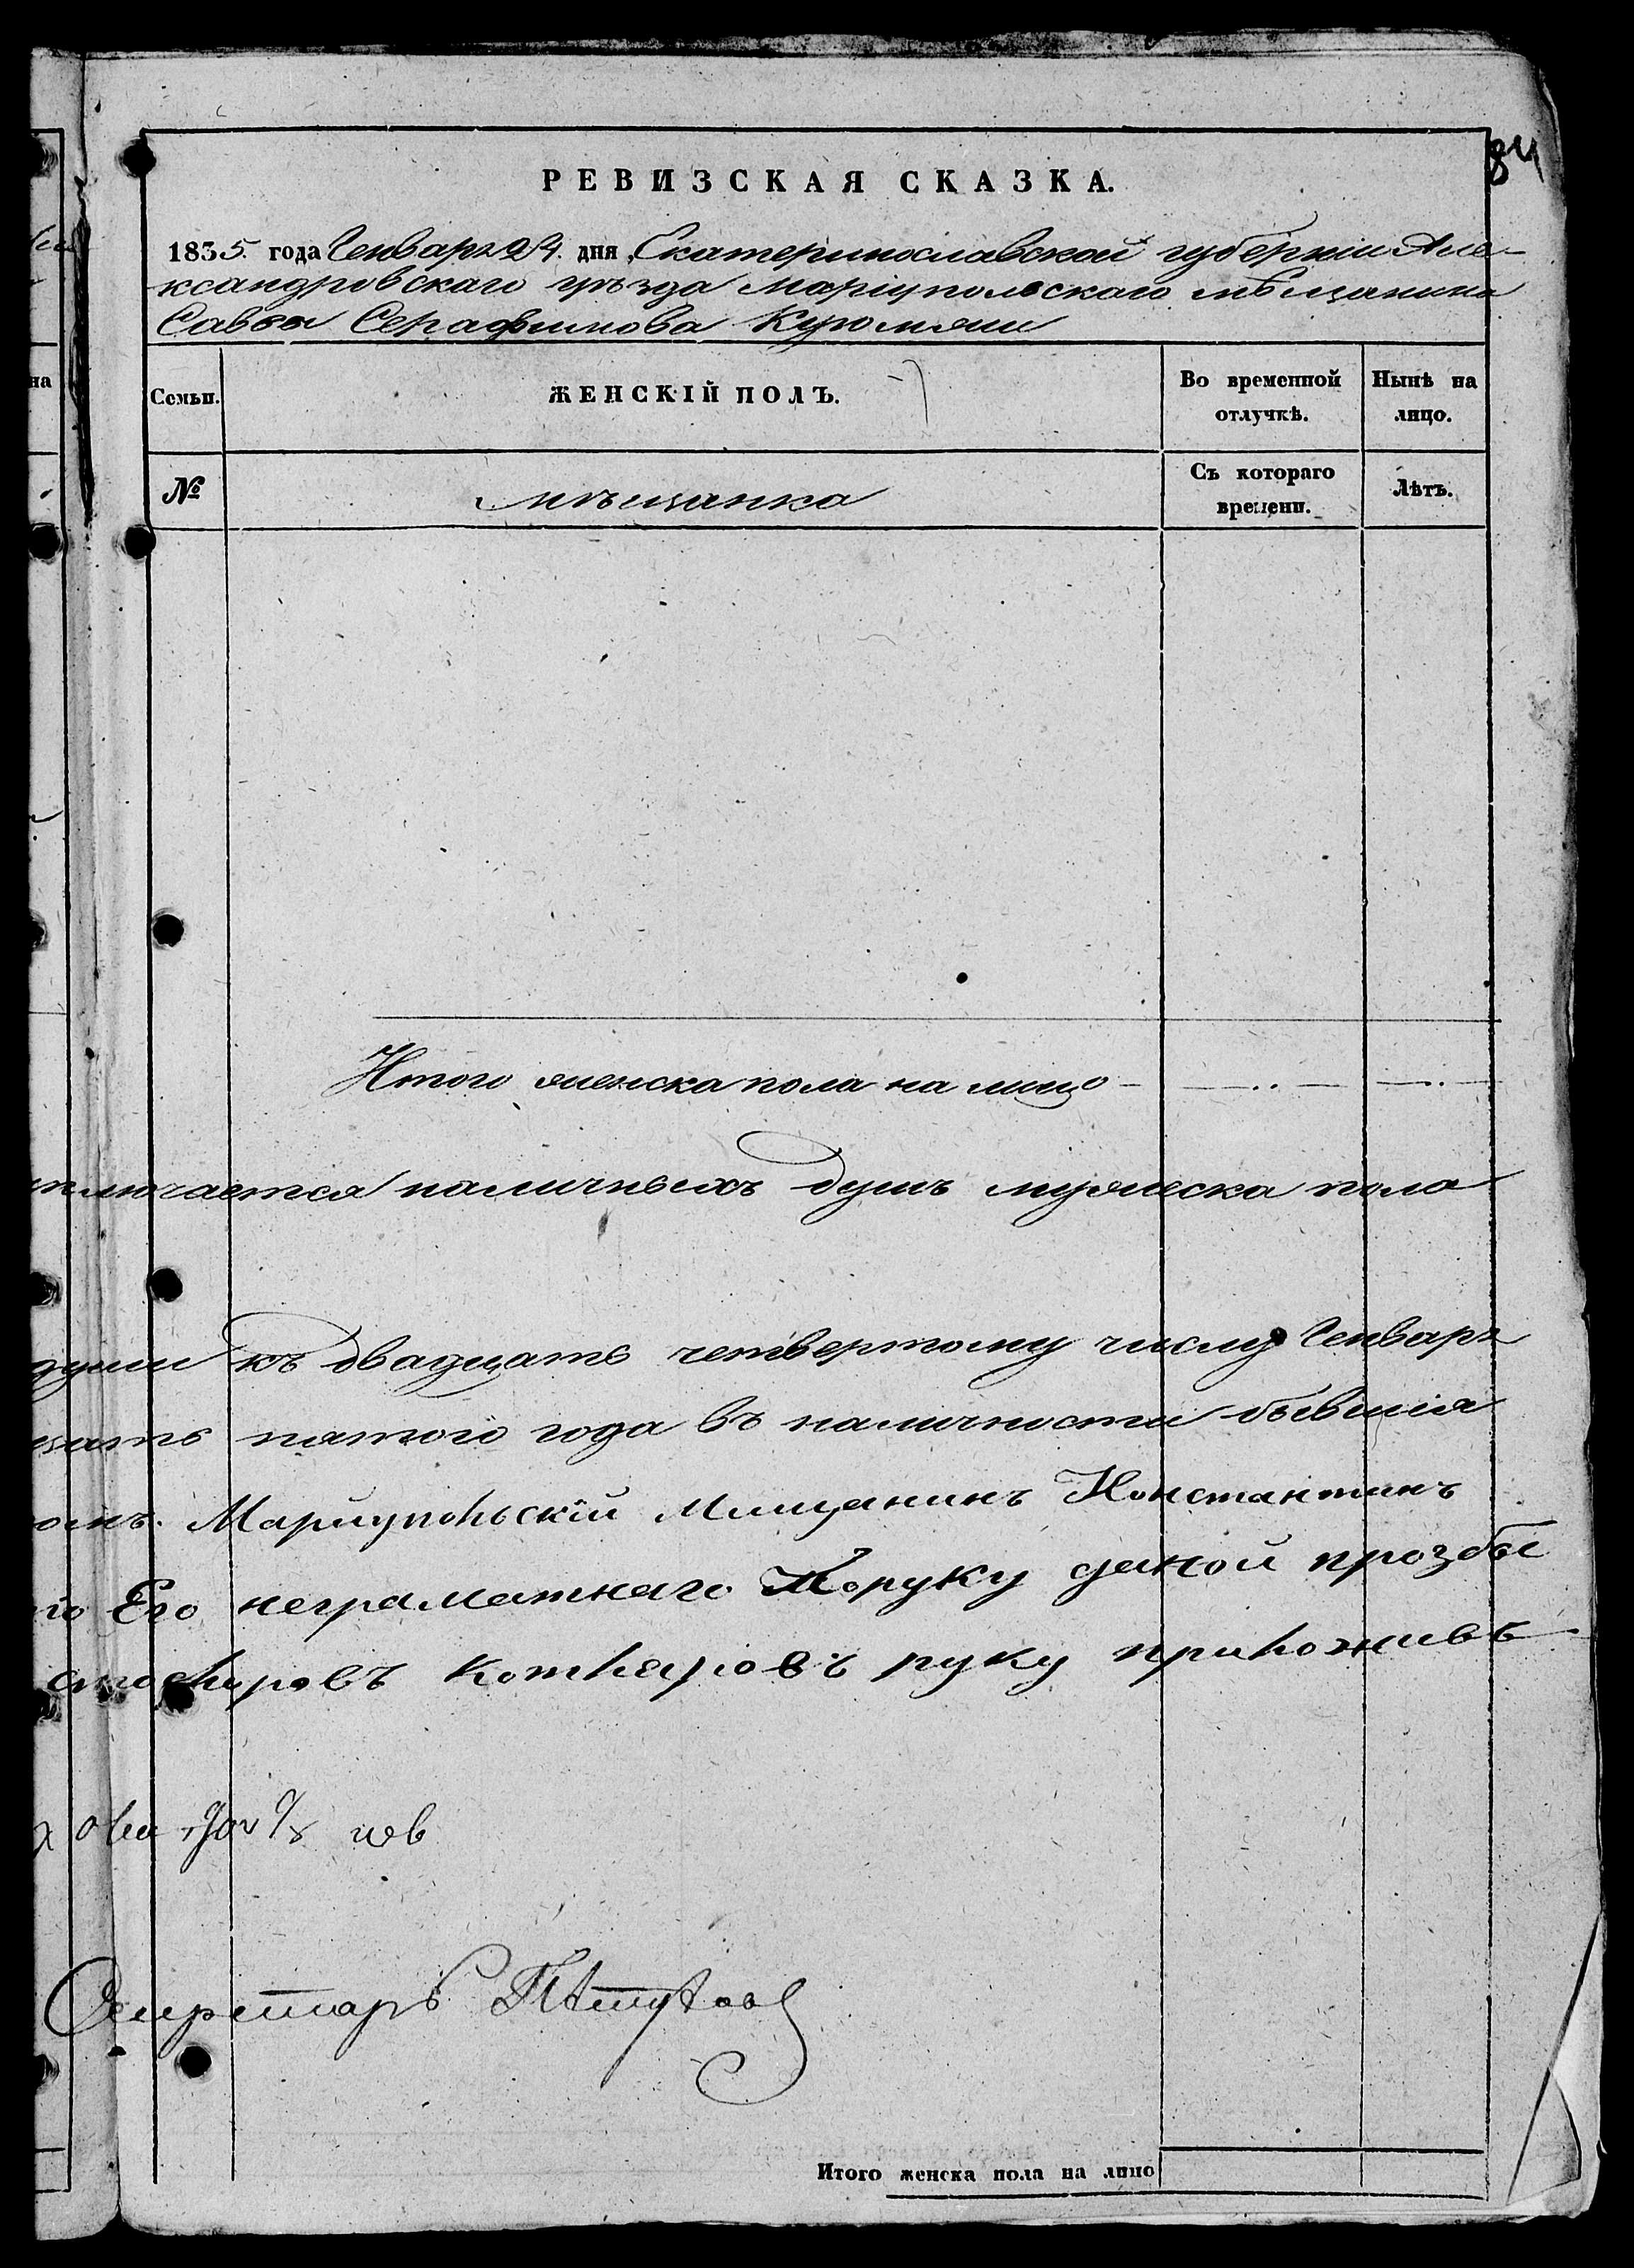 84
РЕВИЗСКАЯ СКАЗКА.
1835. года Генваря 24. дня, Екатеринославской губерніи Але-
ксандровскаго уѣзда Маріупольскаго мѣщанина
Саввы Серафимова
на
Семьи. ЖЕНСКІЙ ПОЛЪ. Во временной отлучкѣ. Нынѣ на лицо.
№ мѣщанка Съ котораго времени. Лѣтъ.
Итого женска пола на лицо
ключается наличныхъ душъ мужеска пола
души къ двадцать четвертому числу Генваря
цать пятого года въ наличности бывшія
Марйупольскій Мищанинъ Константинъ
го Его неграматнаго Поруку даной прозбе
руку приложивъ
Секретарь
Итого женска пола на лицо